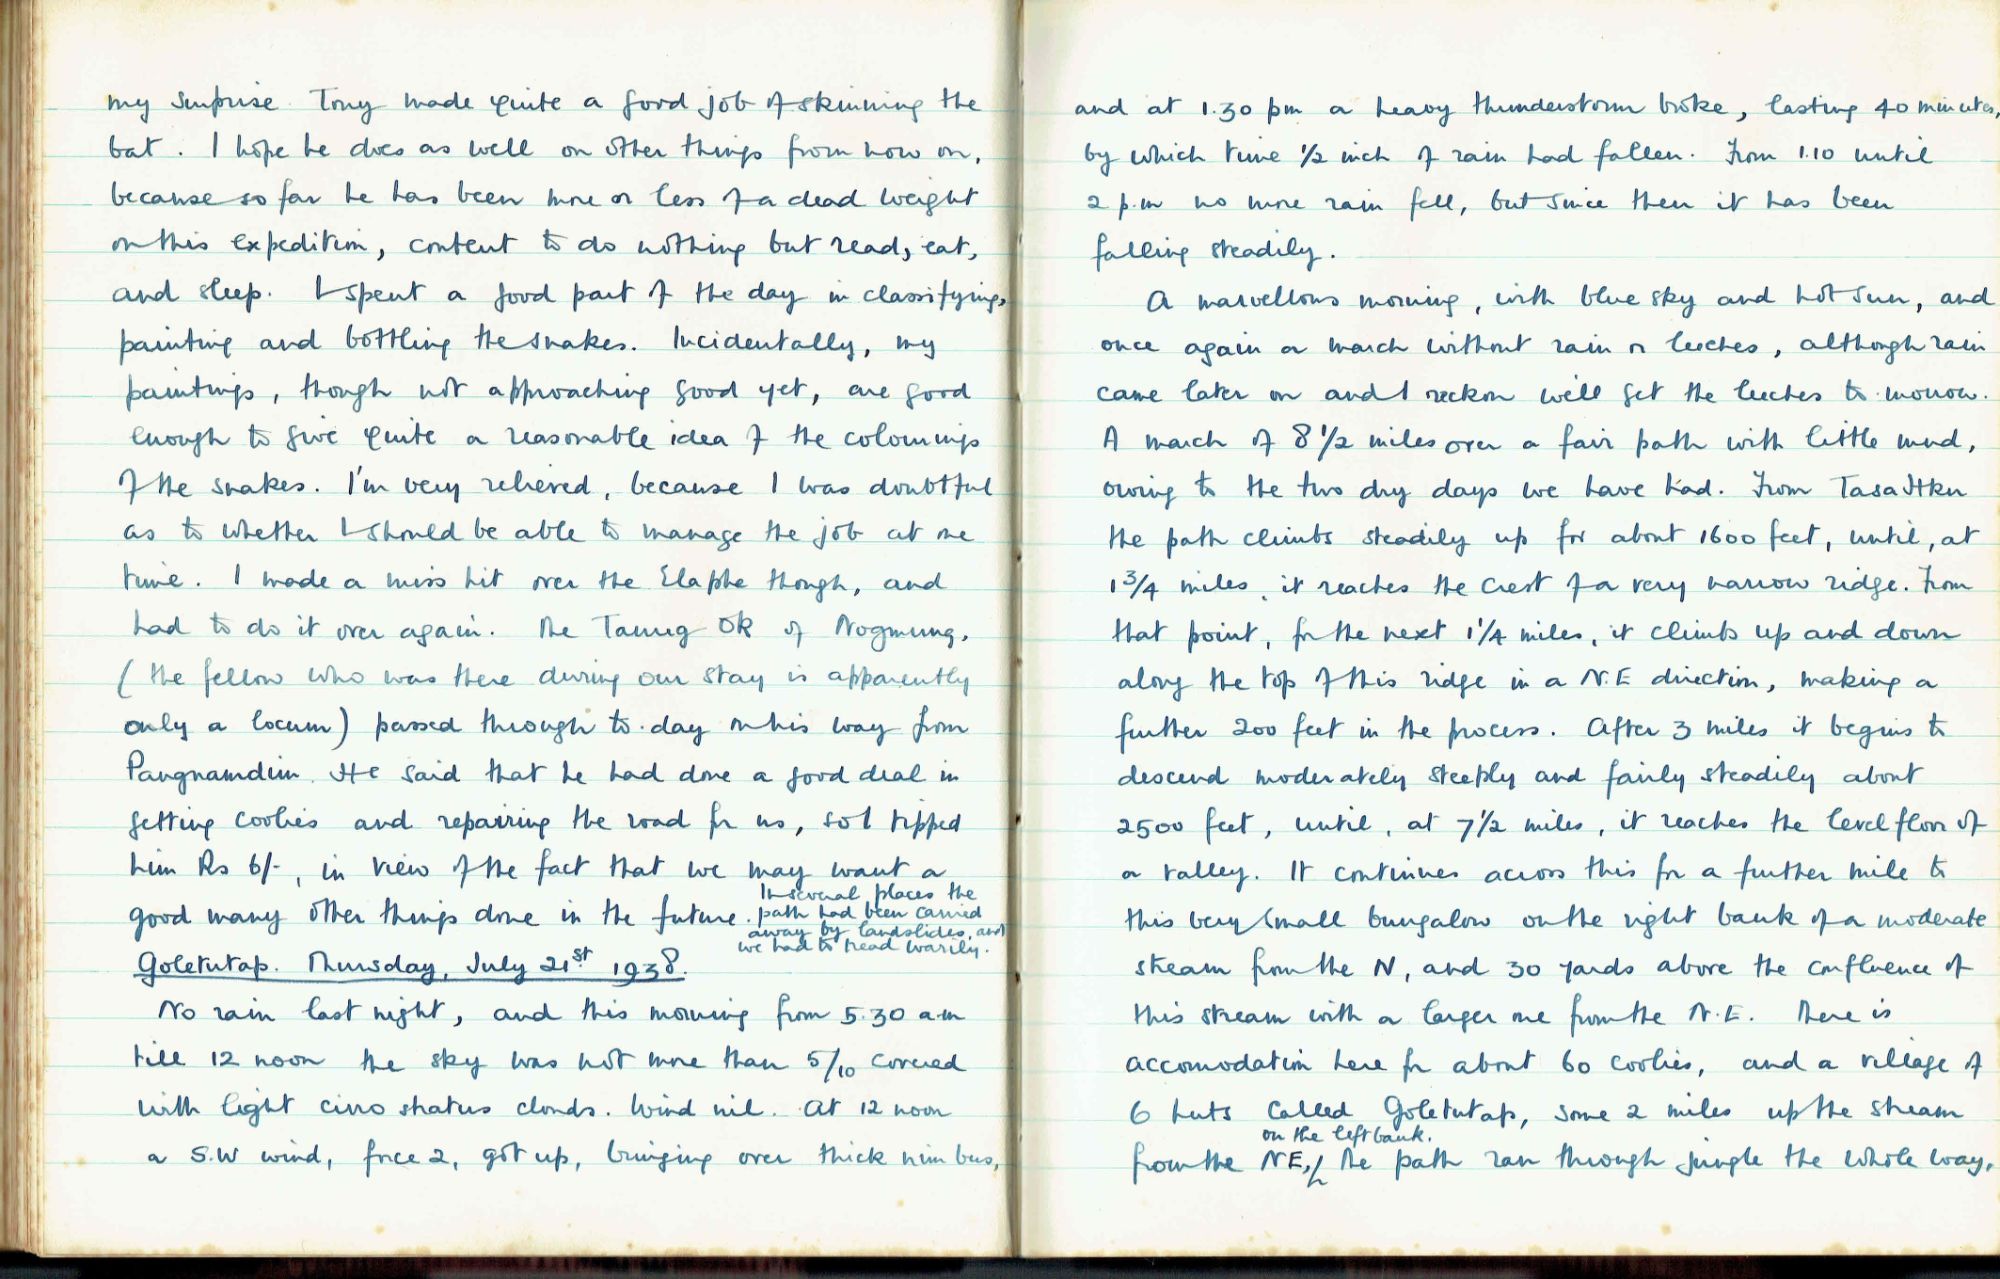 my surprise. Tony made quite a good job of skinning the
bat. I hope he does as well on other things from now on,
because so far he has been more or less of a dead weight
on this expedition, content to do nothing but read, eat,
and sleep. I spent a good part of the day in classifying,
painting and bottling the snakes. Incidentally, my
paintings, though not approaching good yet, are good
enough to give quite a reasonable idea of the colourings
of the snakes. I'm very relieved, because I was doubtful
as to whether I should be able to manage the job at one
time. I made a miss hit over the Elaphe though, and
had to do it over again. The Taung Ok of Nogmung,
(the fellow who was there during our stay is apparently
only a locum) passed through to-day on his way from
Pangnamdim. He said that he had done a good deal in
getting coolies and repairing the road for us, so I tipped
him Rs 6/-, in view of the fact that we may want a
good many other things done in the future.
In several places the
path had been carried
away by landslides, and
we had to tread warily.
Goletutap. Thursday, July 21st 1938.
No rain last night, and this morning from 5.30 a.m
till 12 noon the sky was not more than 5/10 covered
with light cirro stratus clouds. Wind nil. At 12 noon
a S.W wind, force 2, got up, bringing over thick nimbus,
and at 1.30 pm a heavy thunderstorm broke, lasting 40 minutes,
by which time 1/2 inch of rain had fallen. From 1.10 until
2 p.m no more rain fell, but since then it has been
falling steadily.
A marvellous morning, with blue sky and hot sun, and
once again a march without rain or leeches, although rain
came later on and I reckon we'll get the leeches to-morrow.
A march of 8 1/2 miles over a fair path with little mud,
owing to the two dry days we have had. From Tasa Hku
the path climbs steadily up for about 1600 feet, until, at
1 3/4 miles, it reaches the crest of a very narrow ridge. From
that point, for the next 1 1/4 miles, it climbs up and down
along the top of this ridge in a N.E direction, making a
further 200 feet in the process. After 3 miles it begins to
descend moderately steeply and fairly steadily about
2500 feet, until, at 7 1/2 miles, it reaches the level floor of
a valley. It continues across this for a further mile to
this very small bungalow on the right bank of a moderate
stream from the N, and 30 yards above the confluence of
this stream with a larger one from the N.E. There is
accomodation here for about 60 coolies, and a village of
6 huts called Goletutap, some 2 miles up the stream
on the left bank.
from the NE, The path ran through jungle the whole way,